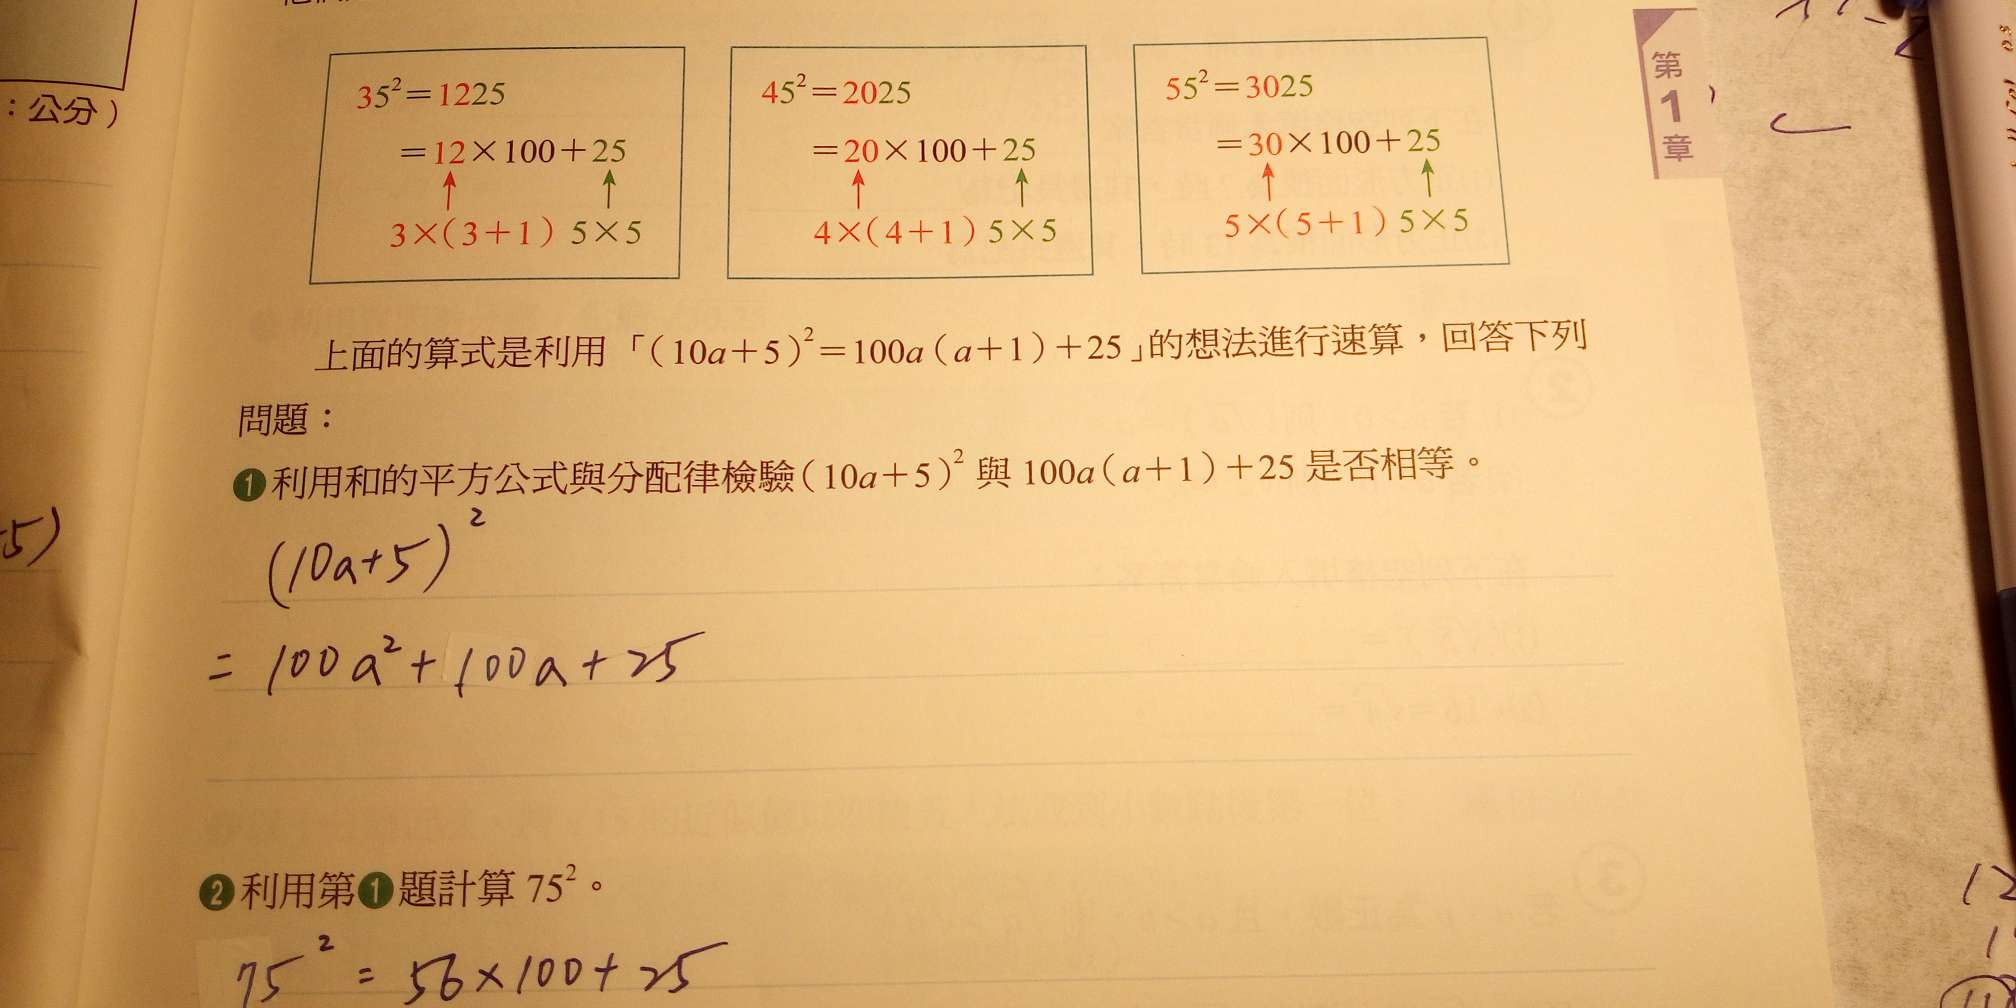 ：公分）
第
1
章
35²＝1225
＝12×100＋25
3×(3＋1) 5×5
45²＝2025
＝20×100＋25
4×(4＋1) 5×5
55²＝3025
＝30×100＋25
5×(5＋1) 5×5
上面的算式是利用「(10a＋5)²＝100a(a＋1)＋25」的想法進行速算，回答下列
問題：
❶利用和的平方公式與分配律檢驗(10a＋5)²與 100a(a＋1)＋25 是否相等。
5)
(10a+5)²
= 100a²+100a+25
❷利用第❶題計算 75²。
75² = 56×100+25
12